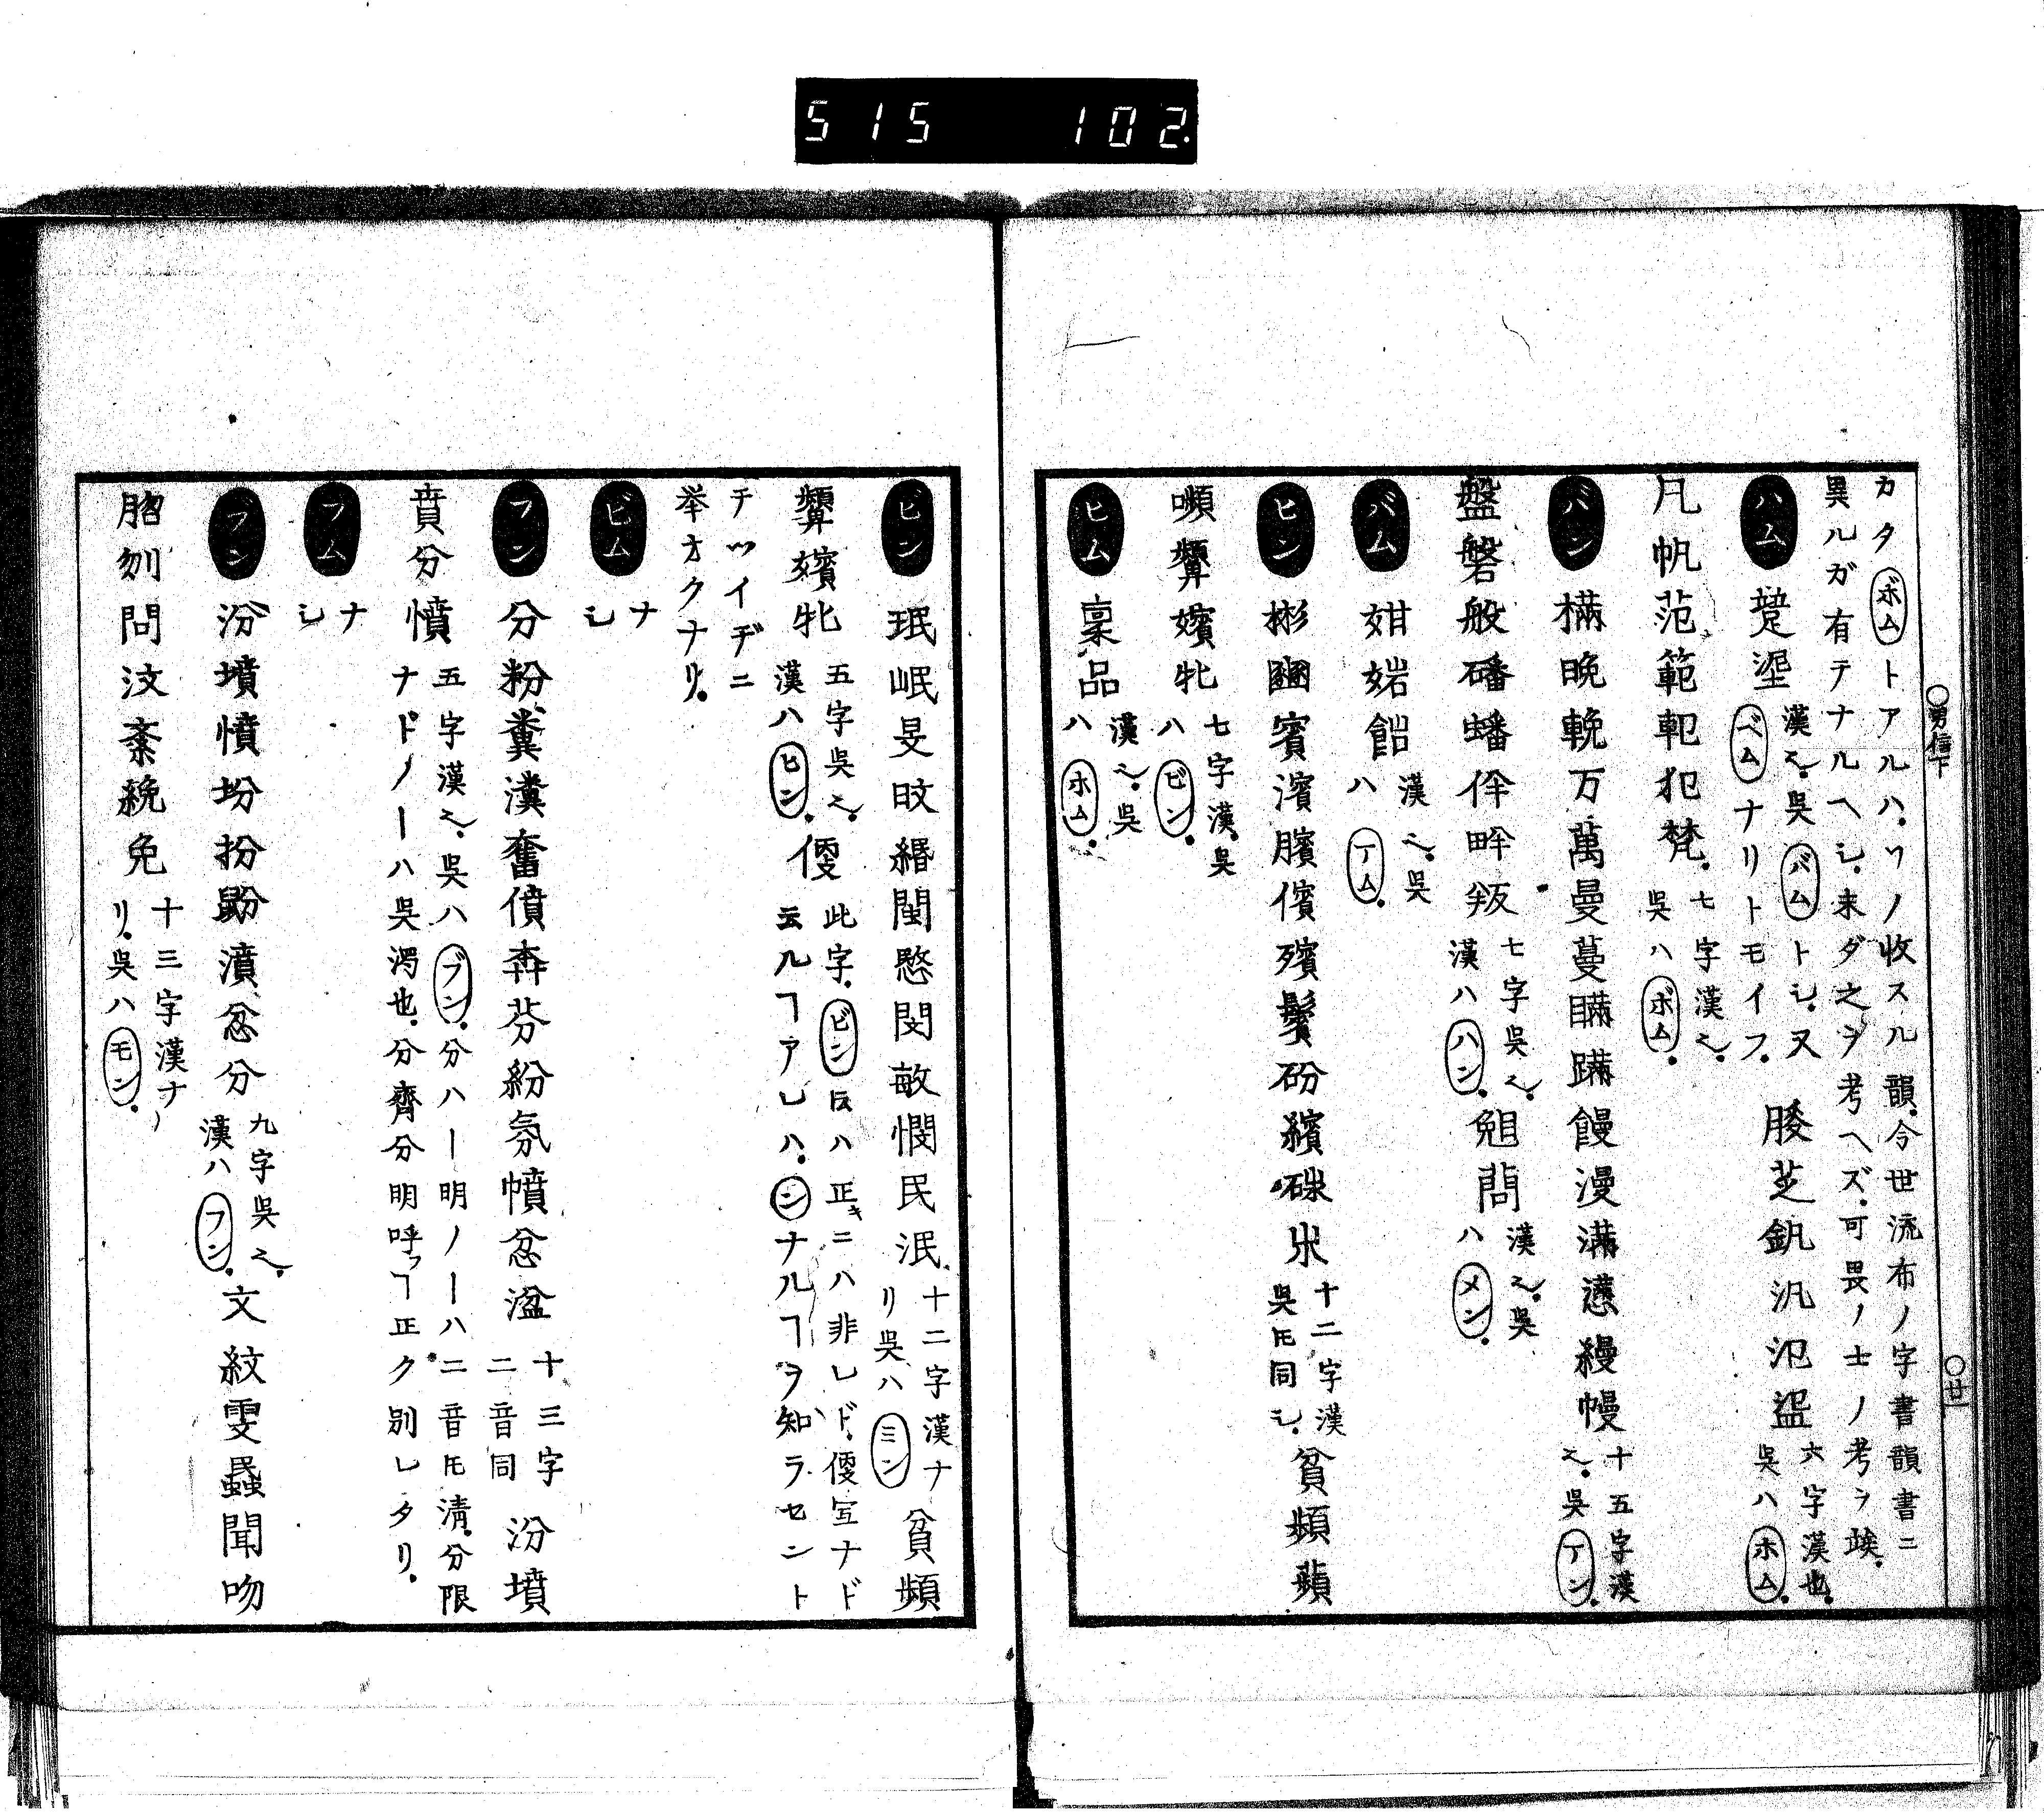 515 102
〇男信下
〇廿一
カタボムトアルハ。ワノ收スル韻。今世流布ノ字書韻書ニ
異ルガ有テナルヘシ。未ダ之ヲ考ヘズ。可畏ノ士ノ考ヲ竢。
ハム
漢之。呉バムトシ。又
ベムナリトモイフ。
芝釩汎氾
六字漢也。
呉ハホム。
凡帆范範軓犯梵。
七字漢之。
呉ハボム。
バン
樠晩輓万萬曼蔓瞞蹣饅漫満懣縵幔
十五字漢
之。呉マン。
盤磐般磻蟠伴畔叛
七字呉之。
漢ハハン。
漢之。呉
ハメン。
バム
姏
漢之。呉
ハマム。
ヒン
彬豳賓濱臏儐殯鬢砏繽
十二字漢
呉𪜈同シ。
貧頻蘋
嚬顰嬪牝
七字漢。呉
ハビン。
ヒム
稟品
漢之。呉
ハホム。
ビン
珉岷旻旼緡閩愍閔敏憫民泯
十二字漢ナ
リ呉ハミン
貧頻
顰嬪牝
五字呉之。
漢ハヒン。
此字。ビン𪜈ハ正キニハ非レド。便宜ナド
云ルヿアレハ。ンナルヿヲ知ラセント
テツイデニ
挙オクナリ。
ビム
ナシ
フン
分粉糞瀵奮僨奔芬紛氛幩忿湓
十三字
二音同
汾墳
賁分憤
五字漢之。呉ハブン。分ハー明ノーハ二音𪜈清。分限
ナドノーハ呉濁也。分齊分明呼フヿ正ク別レタリ。
フム
ナシ
ブン
汾墳憤坋扮鼢濆忿分
九字呉之。
漢ハフン。
文紋雯蟁聞吻
刎問汶紊絻免
十三字漢ナ
リ。呉ハモン。